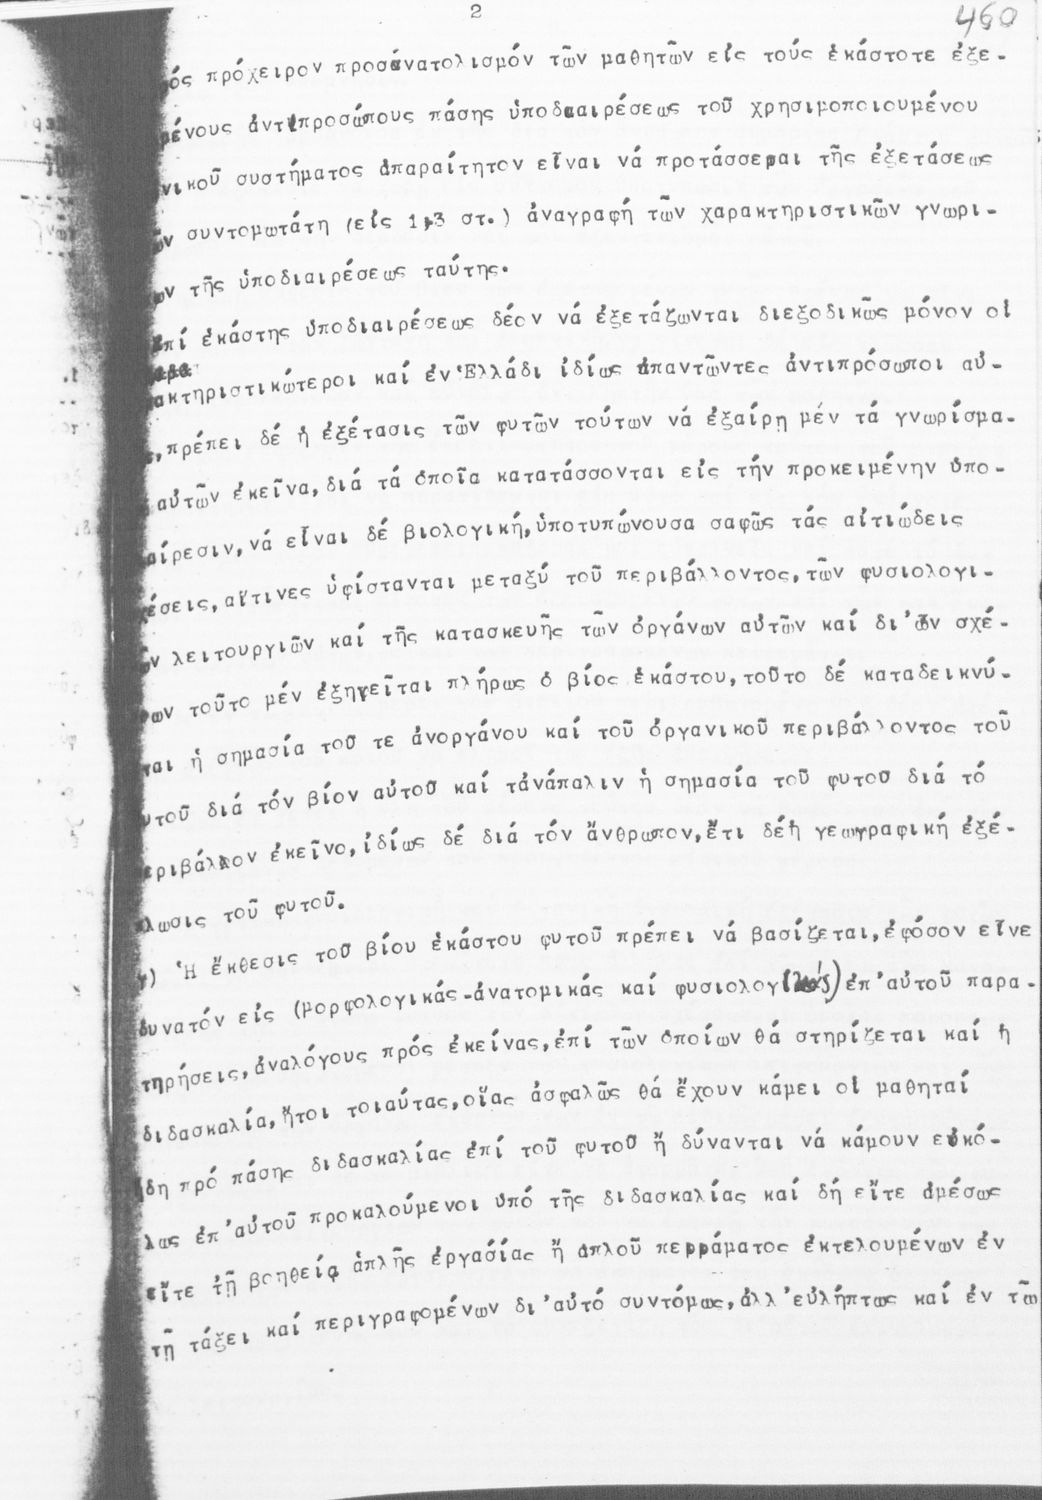 2
460
ός πρόχειρον προσανατολισμόν τῶν μαθητῶν εἰς τούς ἑκάστοτε ἐξε-
μένους ἀντιπροσώπους πάσης ὑποδιαιρέσεως τοῦ χρησιμοποιουμένου
νικοῦ συστήματος ἀπαραίτητον εἶναι νά προτάσσεται τῆς ἐξετάσεως
ῶν συντομωτάτη (εἰς 1,3 στ.) ἀναγραφή τῶν χαρακτηριστικῶν γνωρι-
ων τῆς ὑποδιαιρέσεως ταύτης.
Ἐπί ἑκάστης ὑποδιαιρέσεως δέον νά ἐξετάζωνται διεξοδικῶς μόνον οἱ
ακτηριστικώτεροι καί ἐν Ἑλλάδι ἰδίως ἀπαντῶντες ἀντιπρόσωποι αὐ-
,πρέπει δέ ἡ ἐξέτασις τῶν φυτῶν τούτων νά ἐξαίρῃ μέν τά γνωρίσμα-
αὐτῶν ἐκεῖνα,διά τά ὁποῖα κατατάσσονται εἰς τήν προκειμένην ὑπο-
αίρεσιν,νά εἶναι δέ βιολογική,ὑποτυπώνουσα σαφῶς τάς αἰτιώδεις
έσεις,αἵτινες ὑφίστανται μεταξύ τοῦ περιβάλλοντος,τῶν φυσιολογι-
ῶν λειτουργιῶν καί τῆς κατασκευῆς τῶν ὀργάνων αὐτῶν καί δι'ὧν σχέ-
εων τοῦτο μέν ἐξηγεῖται πλήρως ὁ βίος ἑκάστου,τοῦτο δέ καταδεικνύ-
ται ἡ σημασία τοῦ τε ἀνοργάνου καί τοῦ ὀργανικοῦ περιβάλλοντος τοῦ
υτοῦ διά τόν βίον αὐτοῦ καί τἀνάπαλιν ἡ σημασία τοῦ φυτοῦ διά τό
εριβάλλον ἐκεῖνο,ἰδίως δέ διά τόν ἄνθρωπον,ἔτι δέ ἡ γεωγραφική ἐξέ-
λωσις τοῦ φυτοῦ.
γ) Ἡ ἔκθεσις τοῦ βίου ἑκάστου φυτοῦ πρέπει νά βασίζεται,ἐφόσον εἶνε
δυνατόν εἰς (μορφολογικάς-ἀνατομικάς καί φυσιολογικάς) ἐπ'αὐτοῦ παρα-
τηρήσεις,ἀναλόγους πρός ἐκείνας,ἐπί τῶν ὁποίων θά στηρίζεται καί ἡ
διδασκαλία,ἤτοι τοιαύτας,οἵας ἀσφαλῶς θά ἔχουν κάμει οἱ μαθηταί
ἤδη πρό πάσης διδασκαλίας ἐπί τοῦ φυτοῦ ἤ δύνανται νά κάμουν εὐκό-
λως ἐπ'αὐτοῦ προκαλούμενοι ὑπό τῆς διδασκαλίας καί δή εἴτε ἀμέσως
εἴτε τῇ βοηθείᾳ ἁπλῆς ἐργασίας ἤ ἁπλοῦ πειράματος ἐκτελουμένων ἐν
τῇ τάξει καί περιγραφομένων δι'αὐτό συντόμως,ἀλλ'εὐλήπτως καί ἐν τῶ